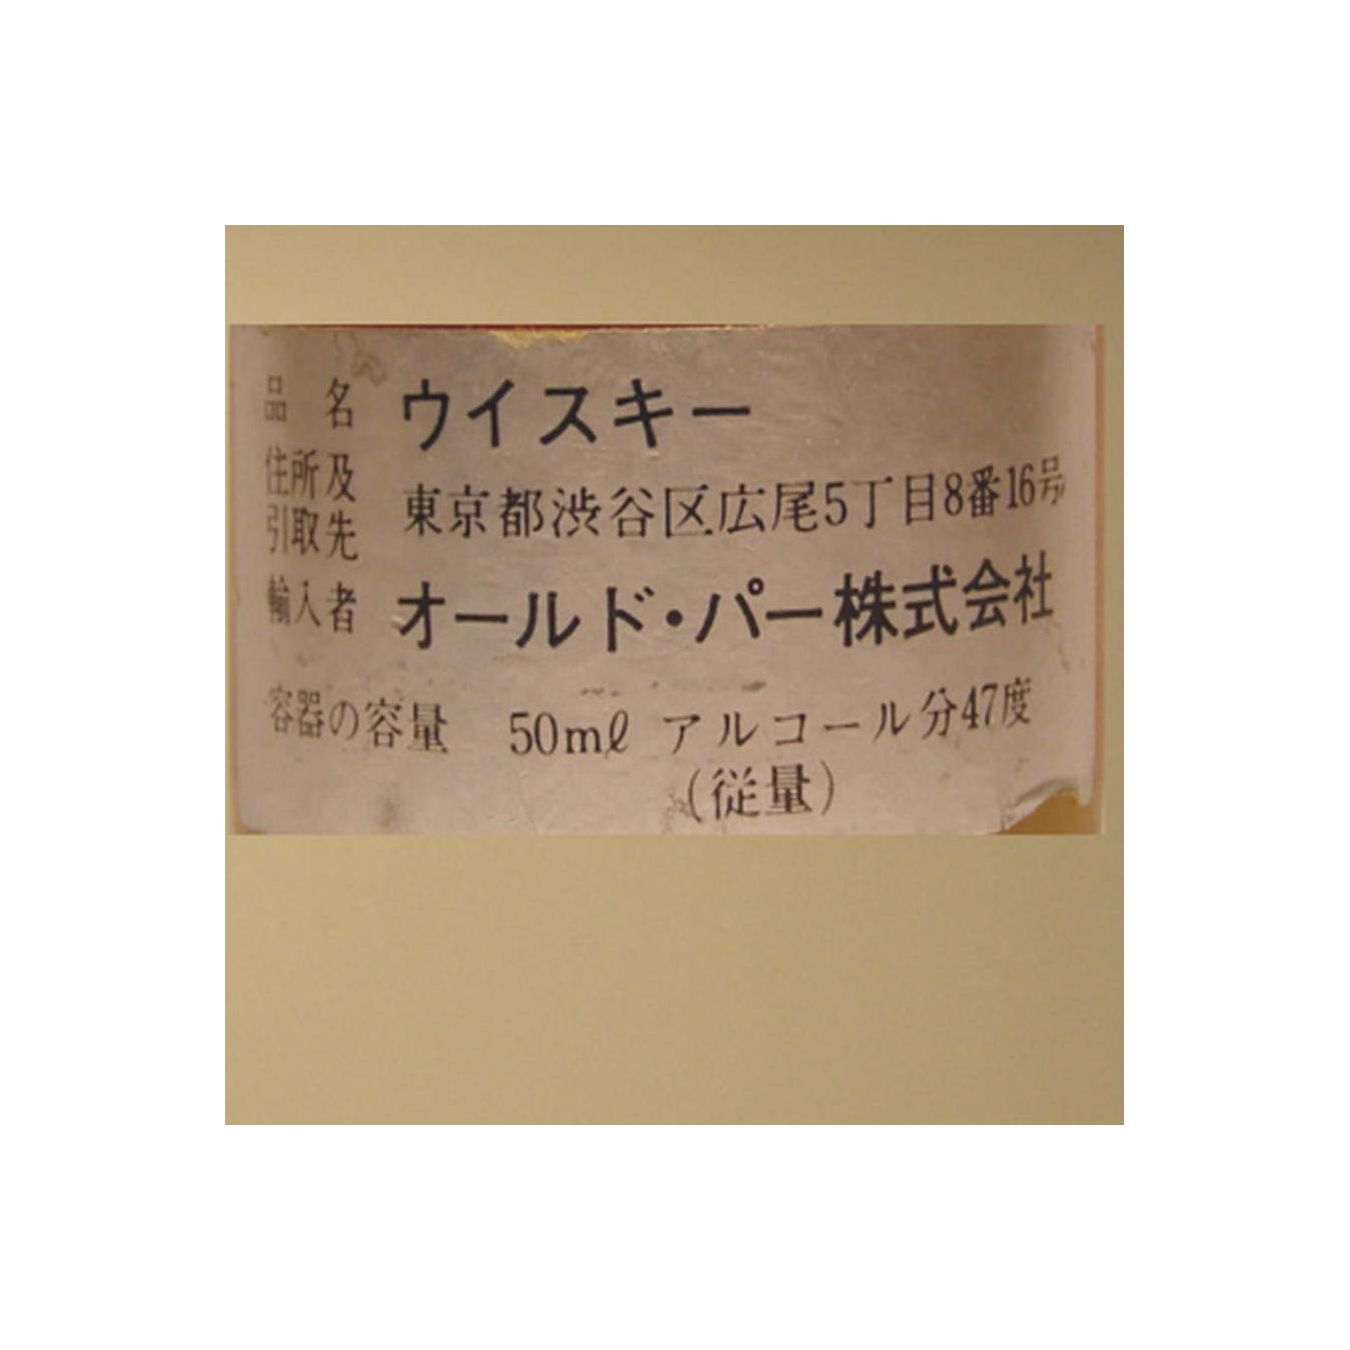 品名 ウイスキー
住所及
引取先 東京都渋谷区広尾5丁目8番16号
輸入者 オールド・パー株式会社
容器の容量 50mℓ アルコール分47度
(従量)